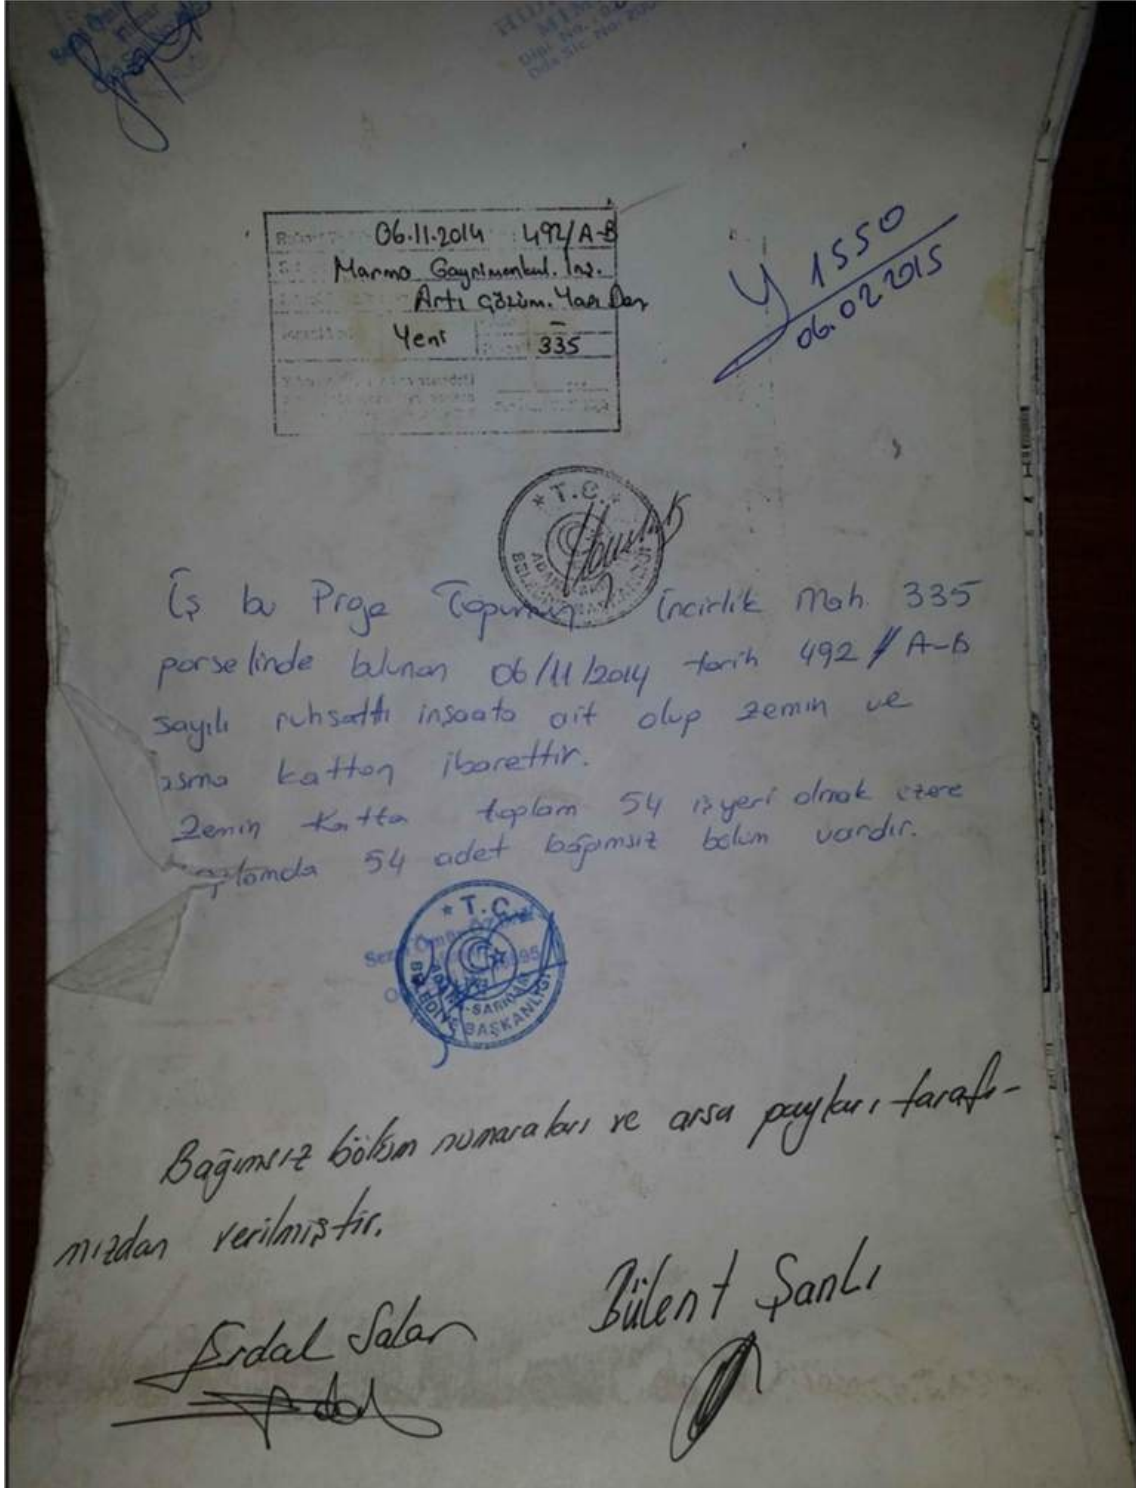 MİM
06.11.2014 492/A-B
Marma Gayrimenkul. İnş.
Artı Çözüm. Yapı Den
Yeni –
335
Y 1550
06.02.2015
* T.C. *
BELEDİYE BAŞKANLIĞI
İş bu Proje Tapunun İncirlik Mah. 335
parselinde bulunan 06/11/2014 tarih 492 // A-B
sayılı ruhsatlı inşaata ait olup zemin ve
asma kattan ibarettir.
Zemin katta toplam 54 işyeri olmak üzere
toplamda 54 adet bağımsız bölüm vardır.
* T.C.
ADANA-SARIÇAM
BELEDİYE BAŞKANLIĞI
Bağımsız bölüm numaraları ve arsa payları tarafı-
mızdan verilmiştir.
Erdal Salan
Bülent Şanlı